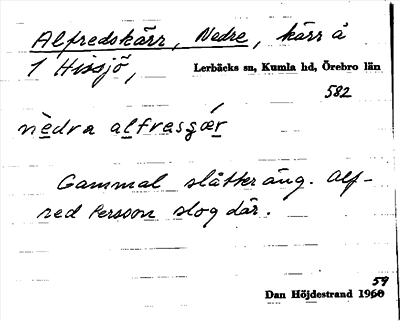 Alfredskärr, Nedre, kärr å
1 Hissjö, Lerbäcks sn, Kumla hd, Örebro län
582
nèdra alfrasʒœr
Gammal slåtteräng. Alf-
red Persson slog där.
59
Dan Höjdestrand 1960